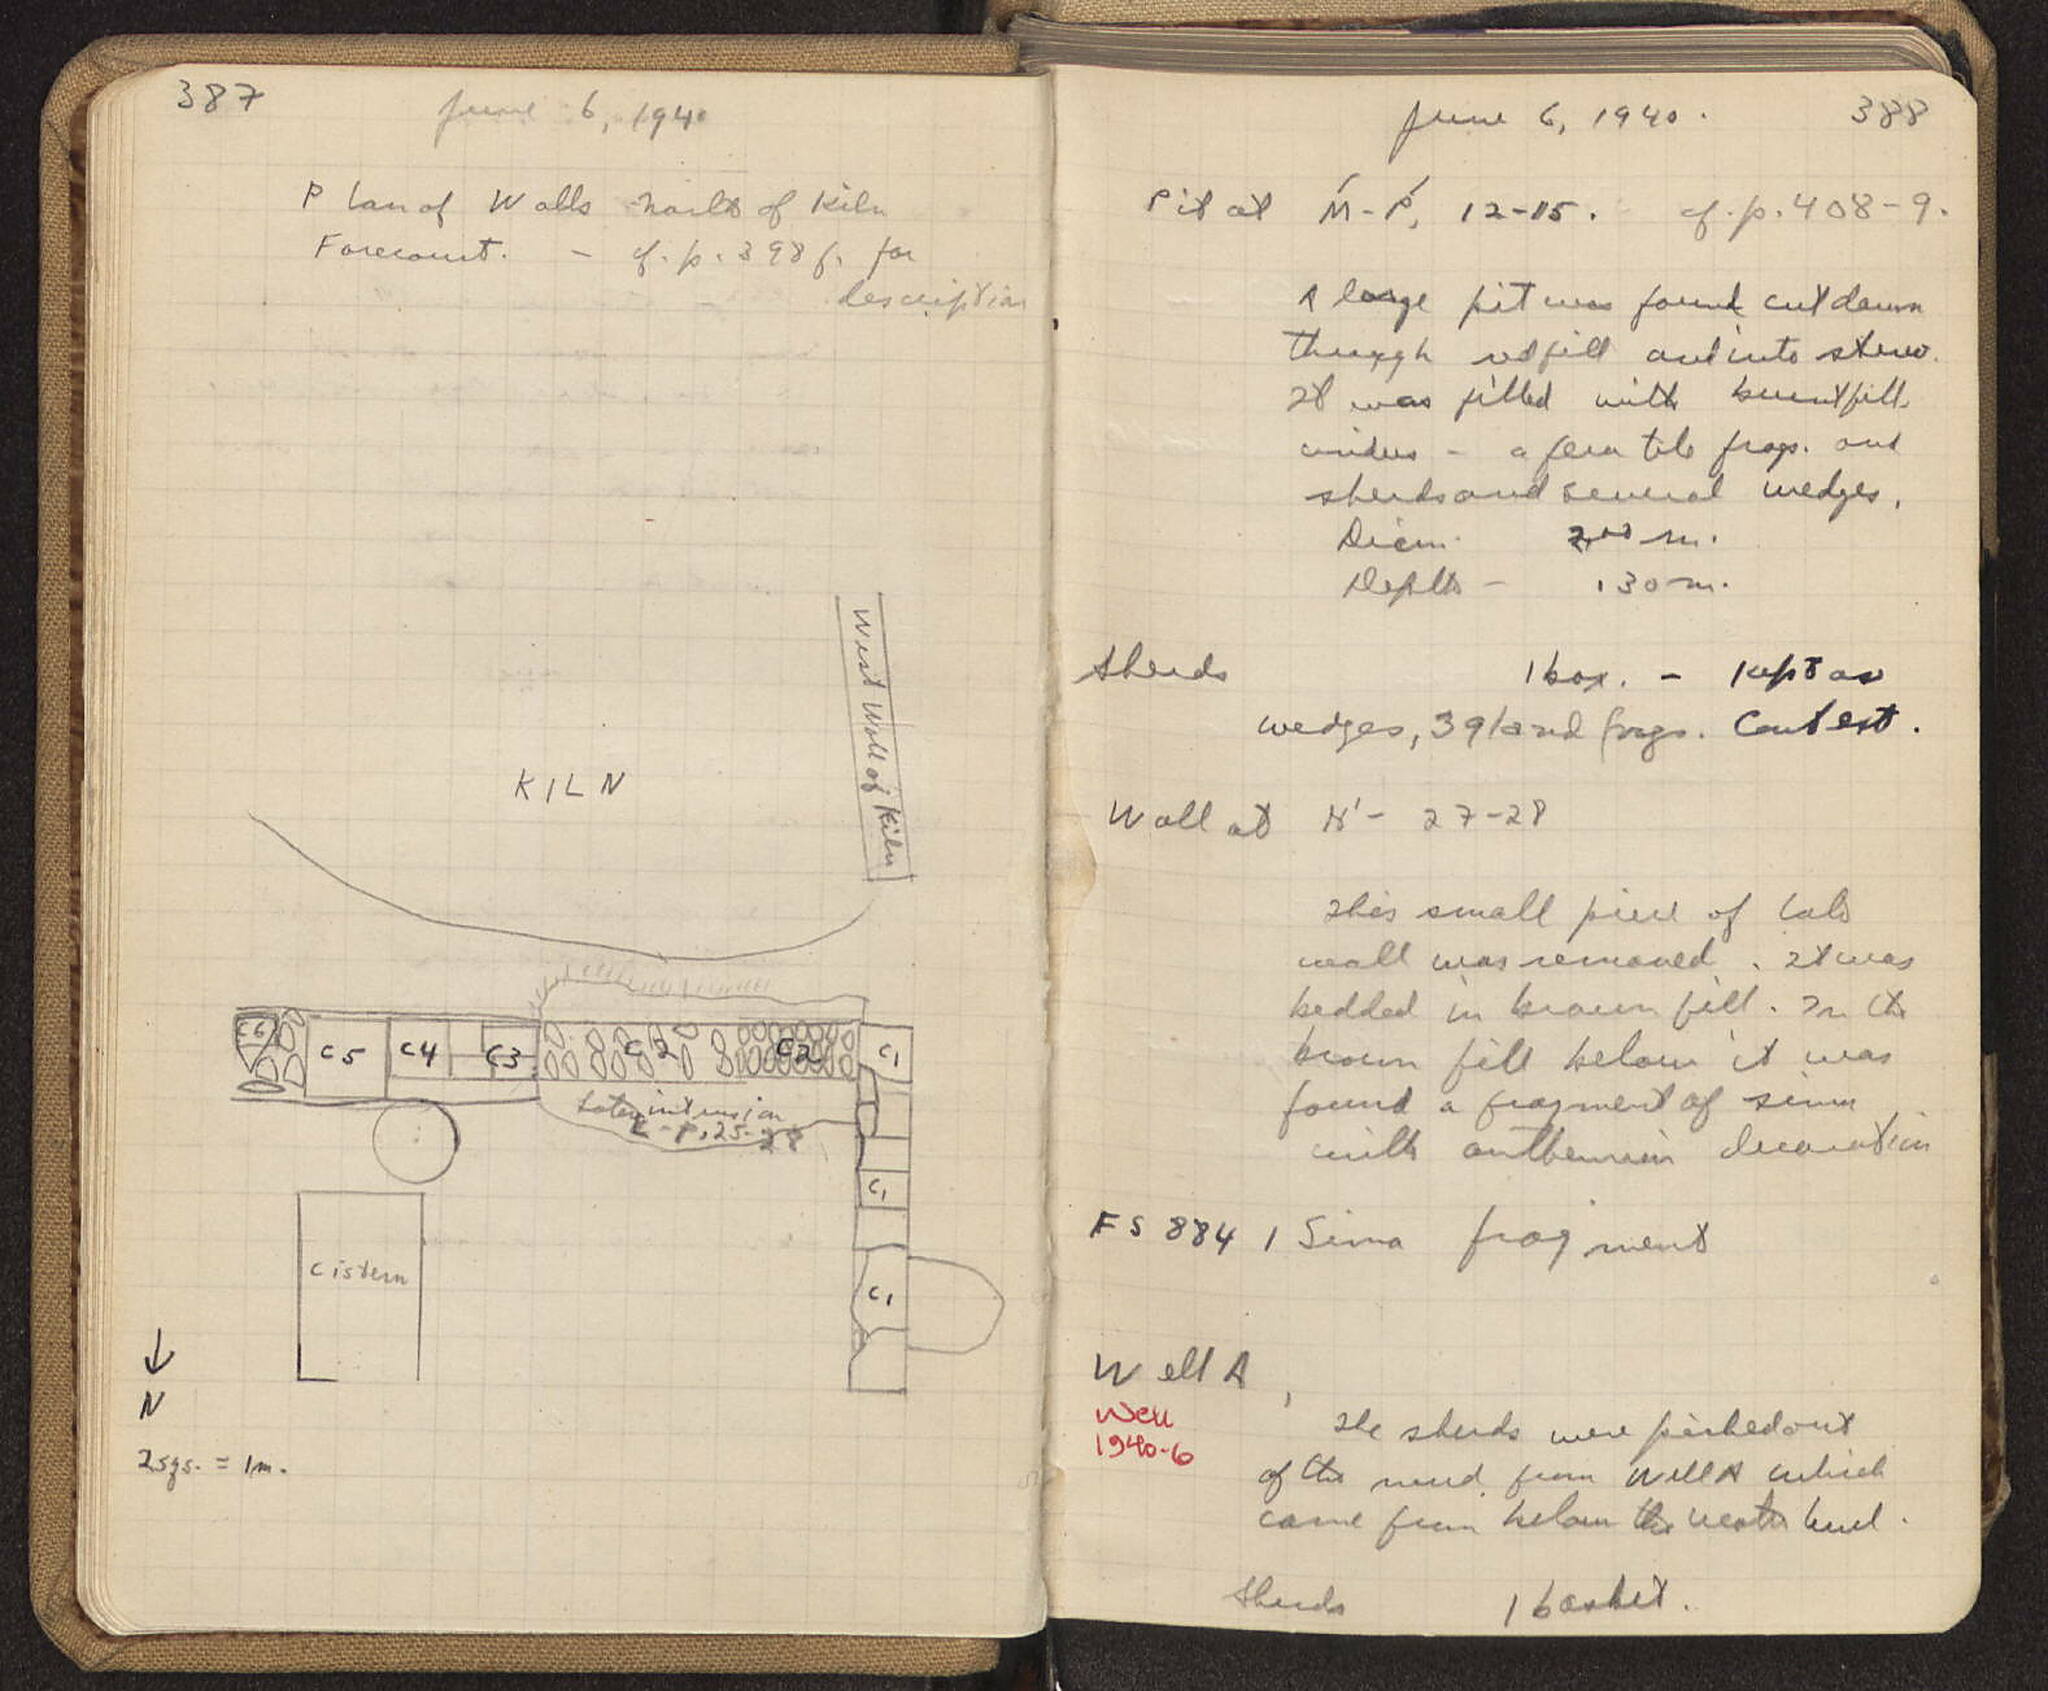 387
June 6, 1940
Plan of Walls North of Kiln
Forecourt. - cf. p. 398 f. for
description
West Wall of Kiln
KILN
C6
C5
C4
C3
C2
C2
C1
Later intrusion
L-P, 25-28
C1
Cistern
C1
N
2 sqs. = 1 m.
June 6, 1940. 388
Pit at Ḿ-Ṕ, 12-15. cf. p. 408-9.
A large pit was found cut down
through red fill and into stereo.
It was filled with burnt fill,
cinders - a few tile frags. and
sherds and several wedges.
Diam. 2.00 m.
Depth - .30 m.
Sherds 1 box. - Kept as
wedges, 39 and frags. Context.
Wall at N' - 27-28
This small piece of late
wall was removed. It was
bedded in brown fill. In the
brown fill below it was
found a fragment of sima
with anthemion decoration
FS 884 1 Sima fragment
Well A,
Well
1940-6
The sherds were picked out
of the mud from Well A which
came from below the water level.
Sherds 1 basket.